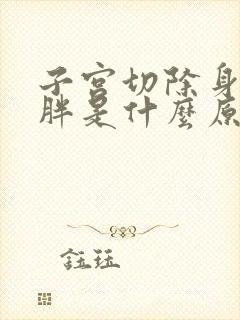 子宮切除身
胖是什麼原
鈺珏